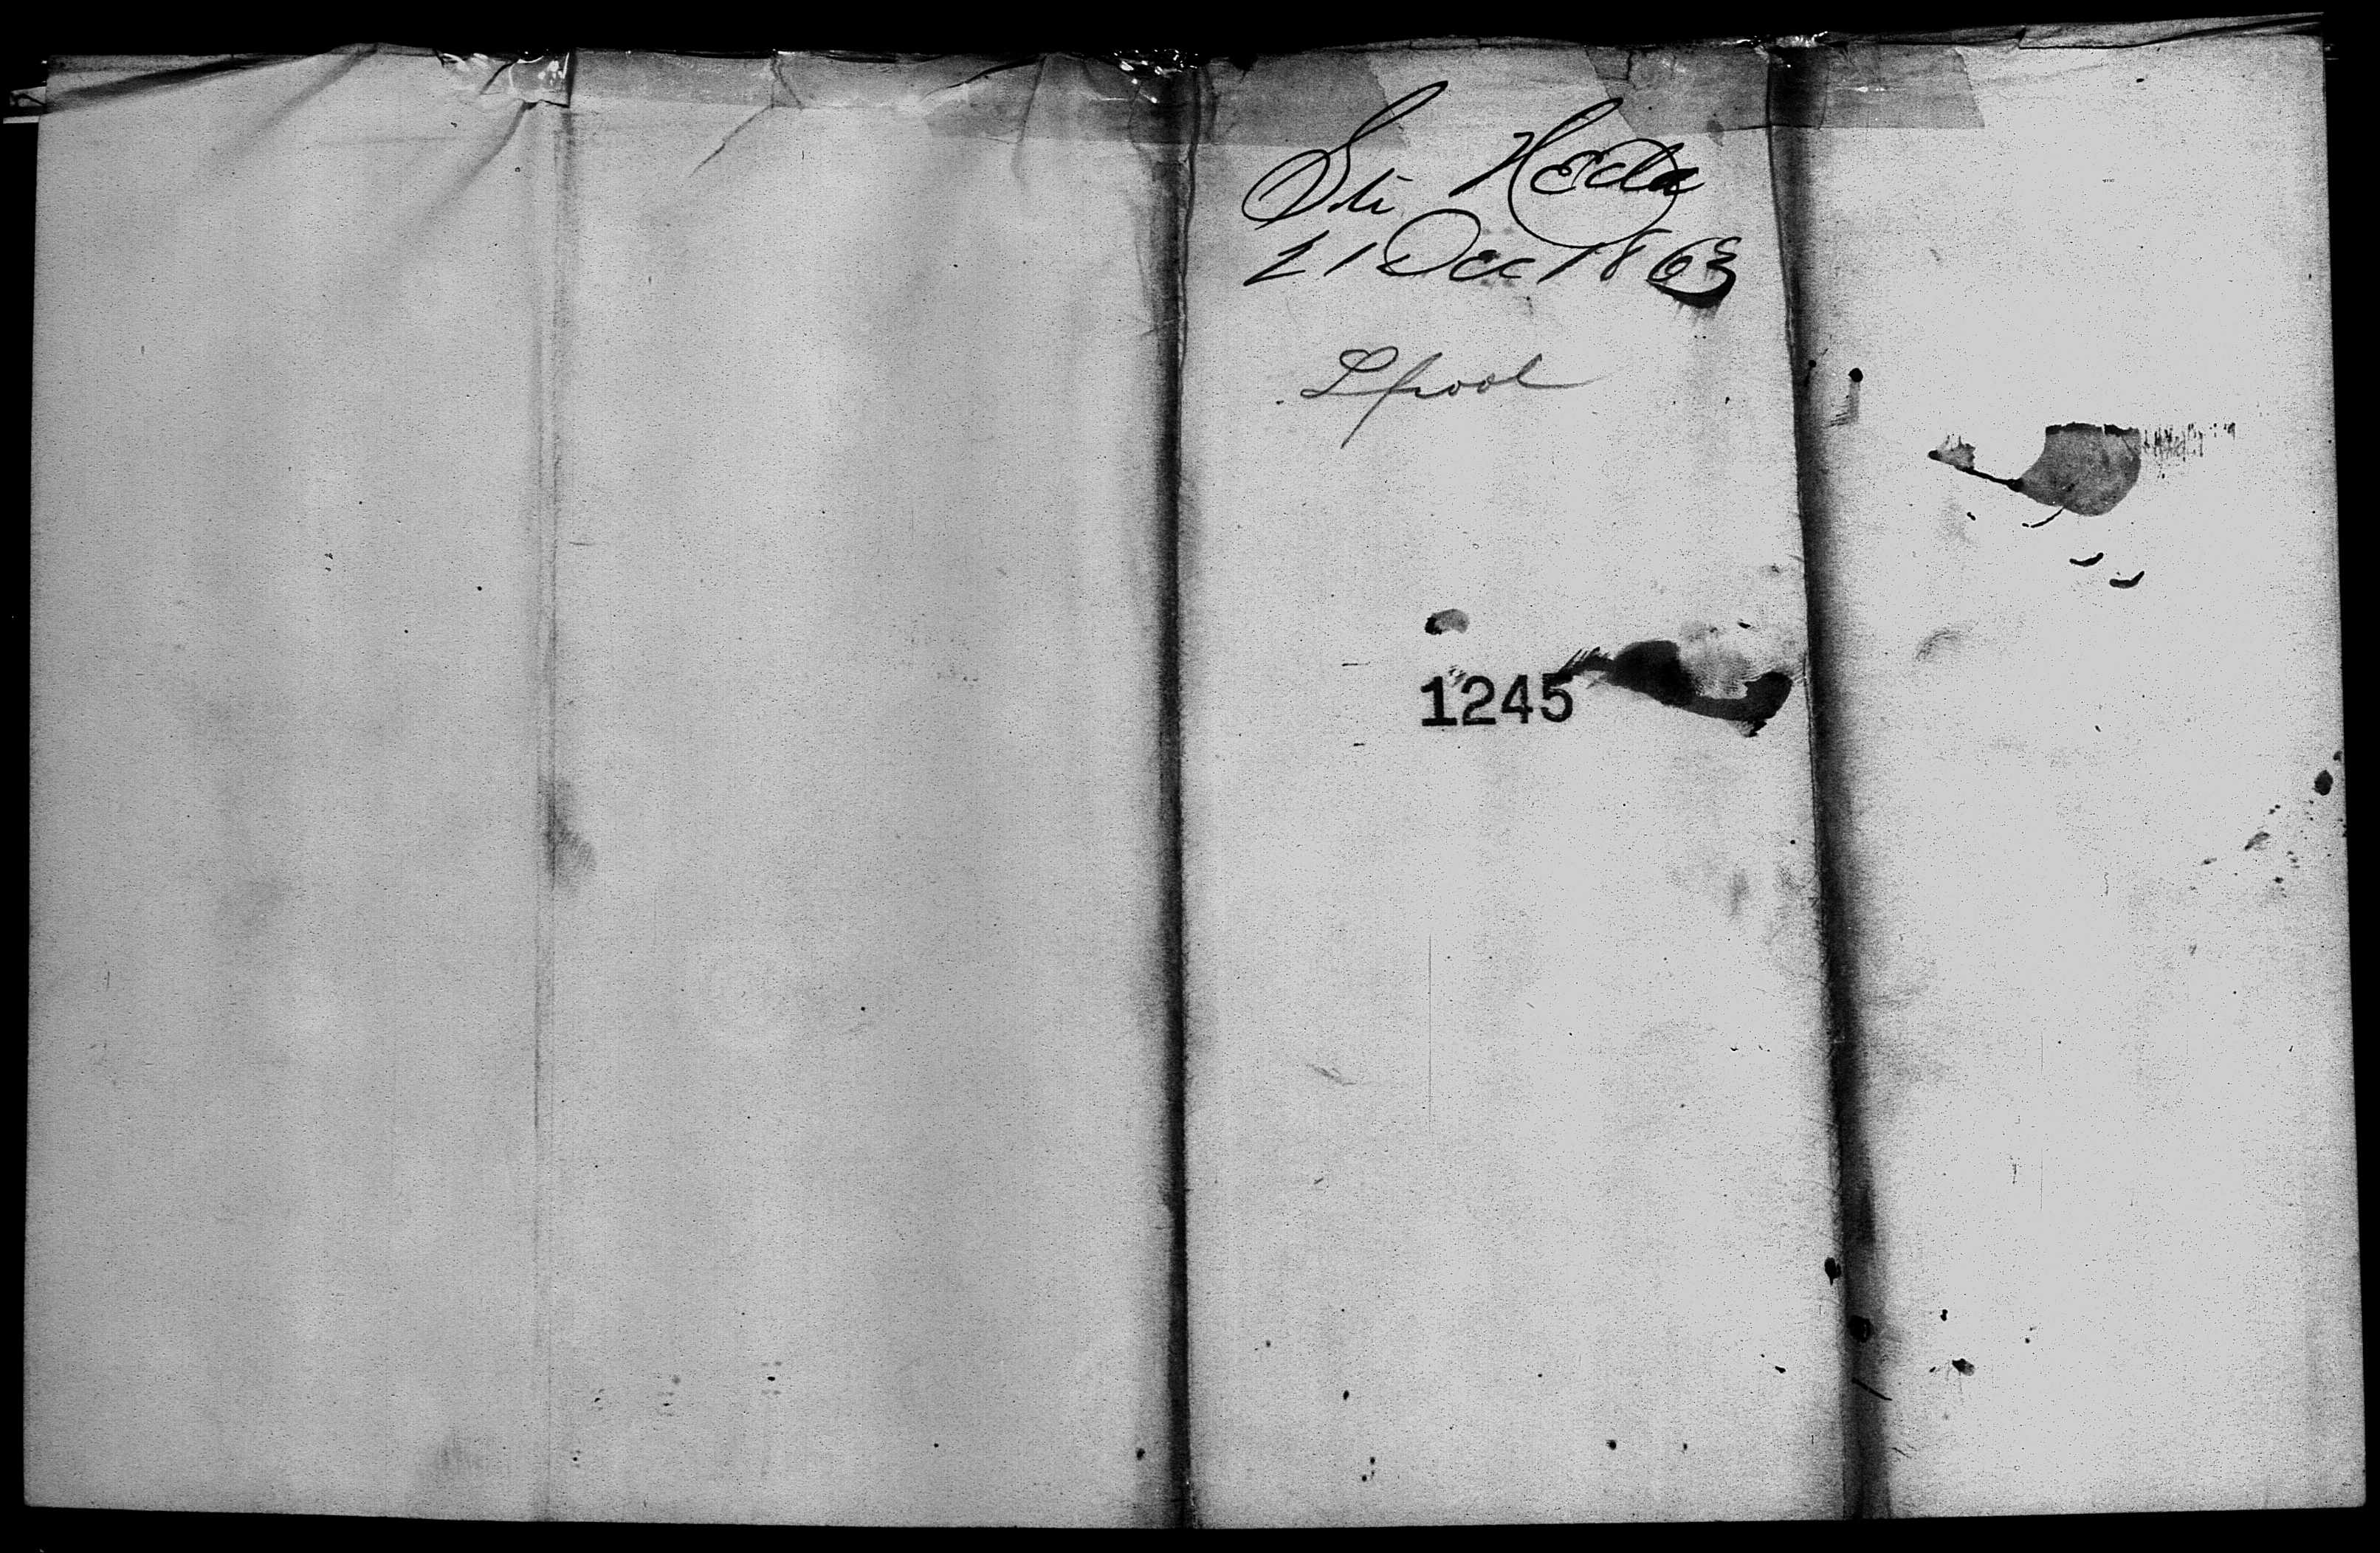 Str Hecla
21 Dec 1863
Lpool
1245